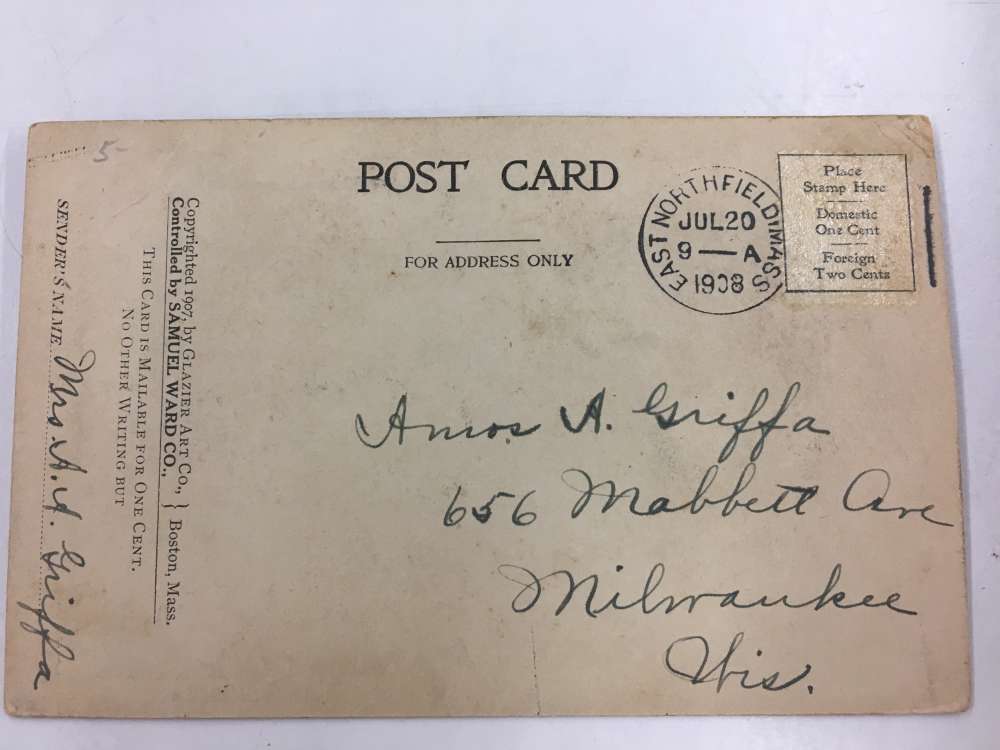 5-
POST CARD
FOR ADDRESS ONLY
EAST NORTHFIELD, MASS
JUL 20
9 — A
1908
Place
Stamp Here
Domestic
One Cent
Foreign
Two Cents
Amos A. Griffa
656 Mabbett Ave
Milwaukee
Wis.
Copyrighted 1907, by GLAZIER ART CO., } Boston, Mass.
Controlled by SAMUEL WARD CO.,
THIS CARD IS MAILABLE FOR ONE CENT.
NO OTHER WRITING BUT
SENDER'S NAME Mrs. A. A. Griffa